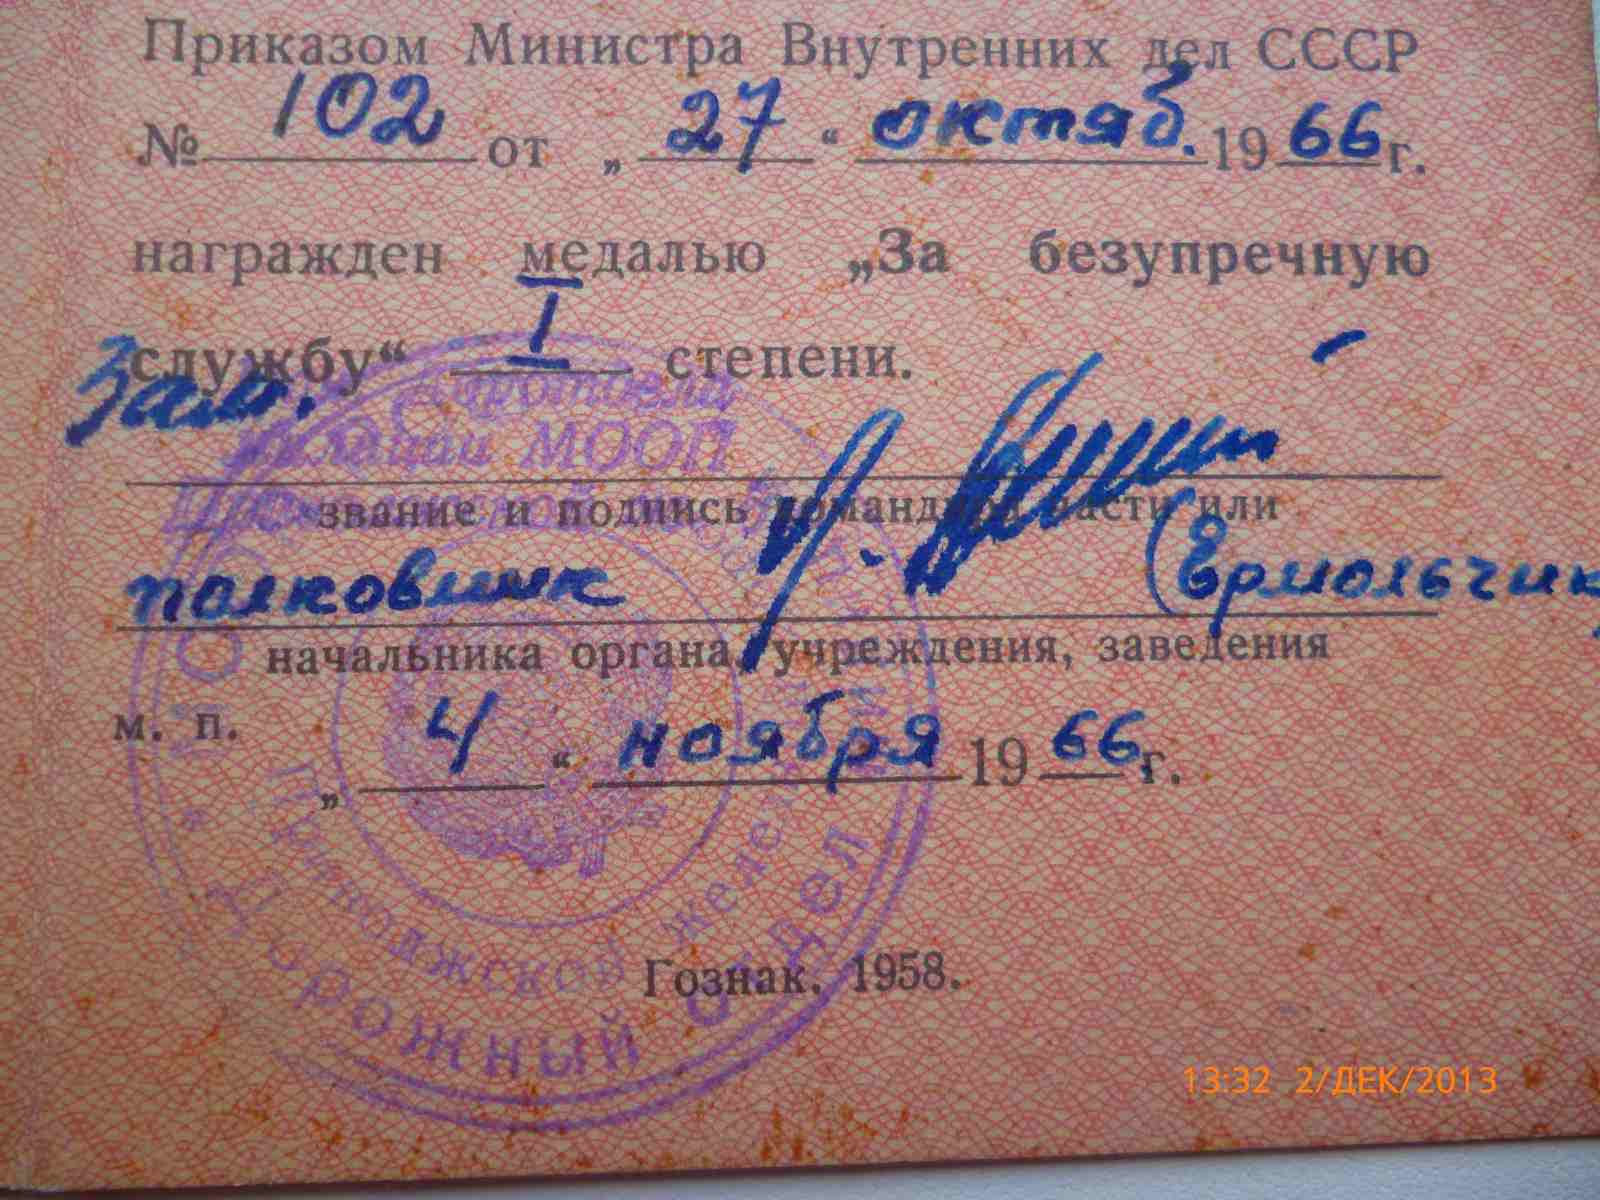 Приказом Министра Внутренних дел СССР
№ 102 от „ 27 “ октяб. 19 66 г.
награжден медалью „За безупречную
службу“ I степени.
Зам.
дортдела
милиции МООП
звание и подпись командира части или
полковник (Ермольчик
начальника органа, учреждения, заведения
м. п.
„ 4 “ ноября 19 66 г.
Приволжской желез
Дорожный отдел
Гознак. 1958.
13:32 2/ДЕК/2013